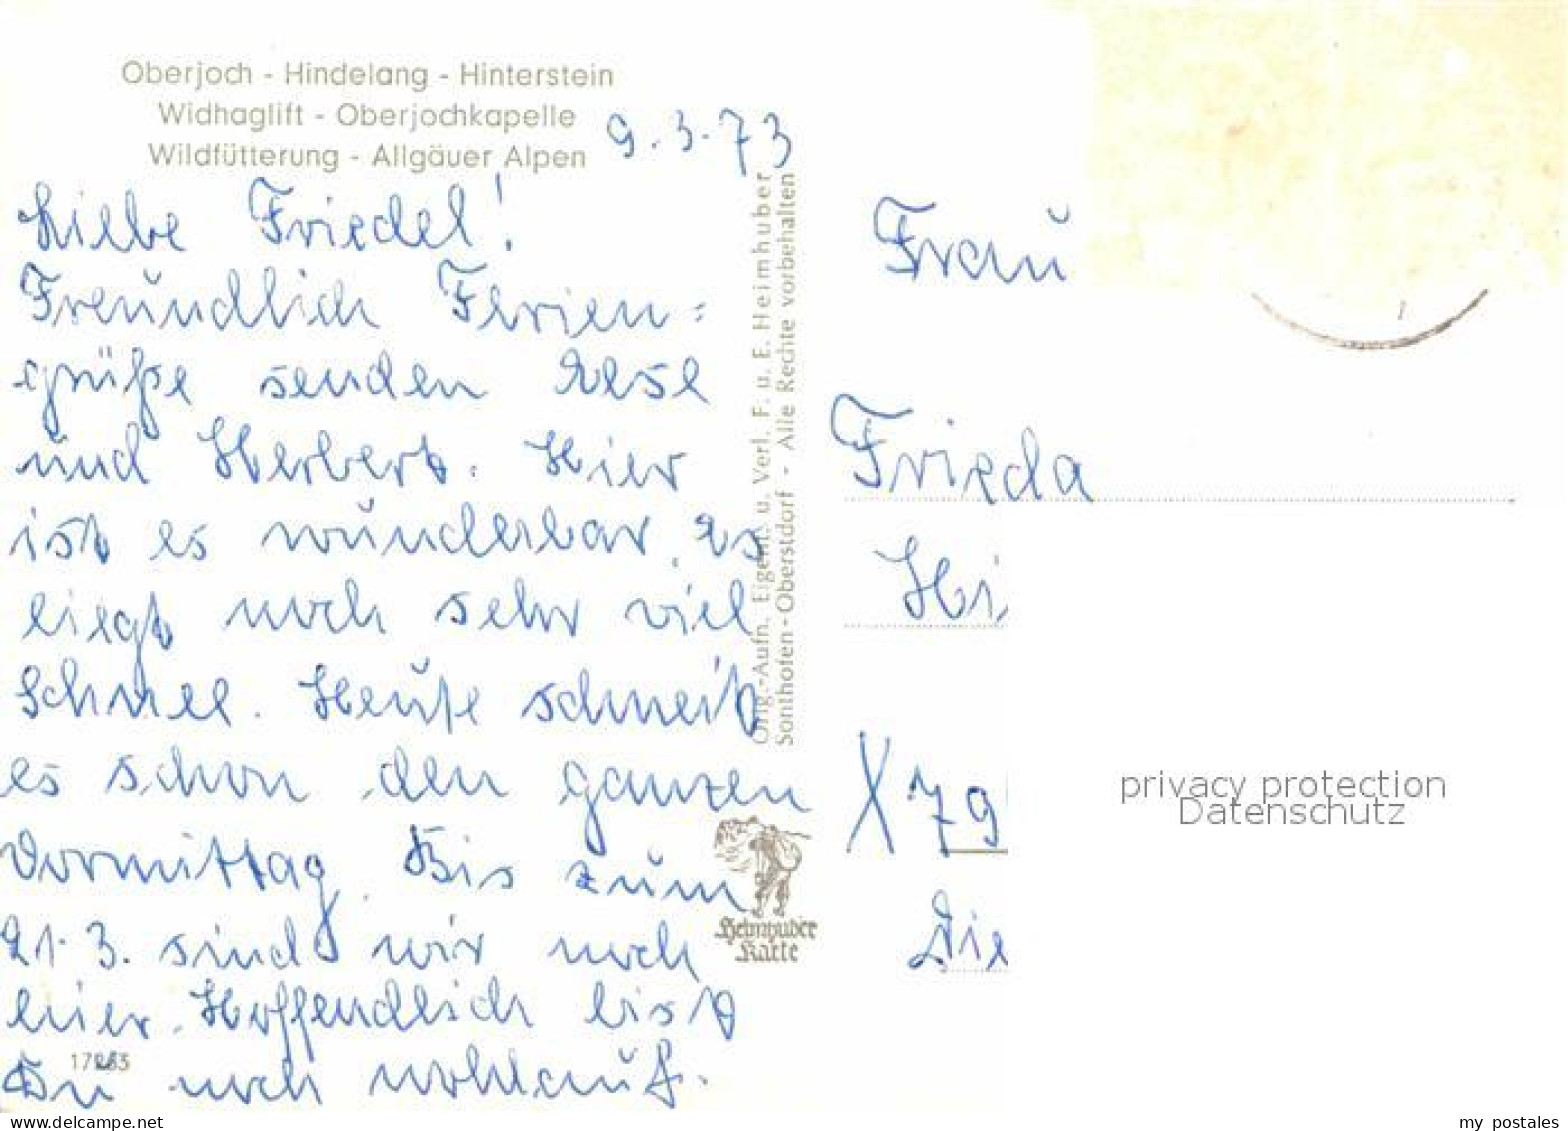 Oberjoch - Hindelang - Hinterstein
Widhaglift - Oberjochkapelle
Wildfütterung - Allgäuer Alpen
9.3.73
Liebe Friedel!
Freundlich Ferien=
grüße senden Rese
und Herbert. Hier
ist es wunderbar. Es
liegt noch sehr viel
Schnee. Heute schneit
es schon den ganzen
Vormittag. Bis zum
21.3. sind wir noch
hier. Hoffendlich bist
Du noch wohlauf.
17
Orig.-Aufn. Eigent. u. Verl. F. u. E. Heimhuber
Sonthofen-Oberstdorf - Alle Rechte vorbehalten
Heimhuber
Karte
Frau
Frieda
Hi
X 79
Die
privacy protection
Datenschutz
www.delcampe.net
my_postales